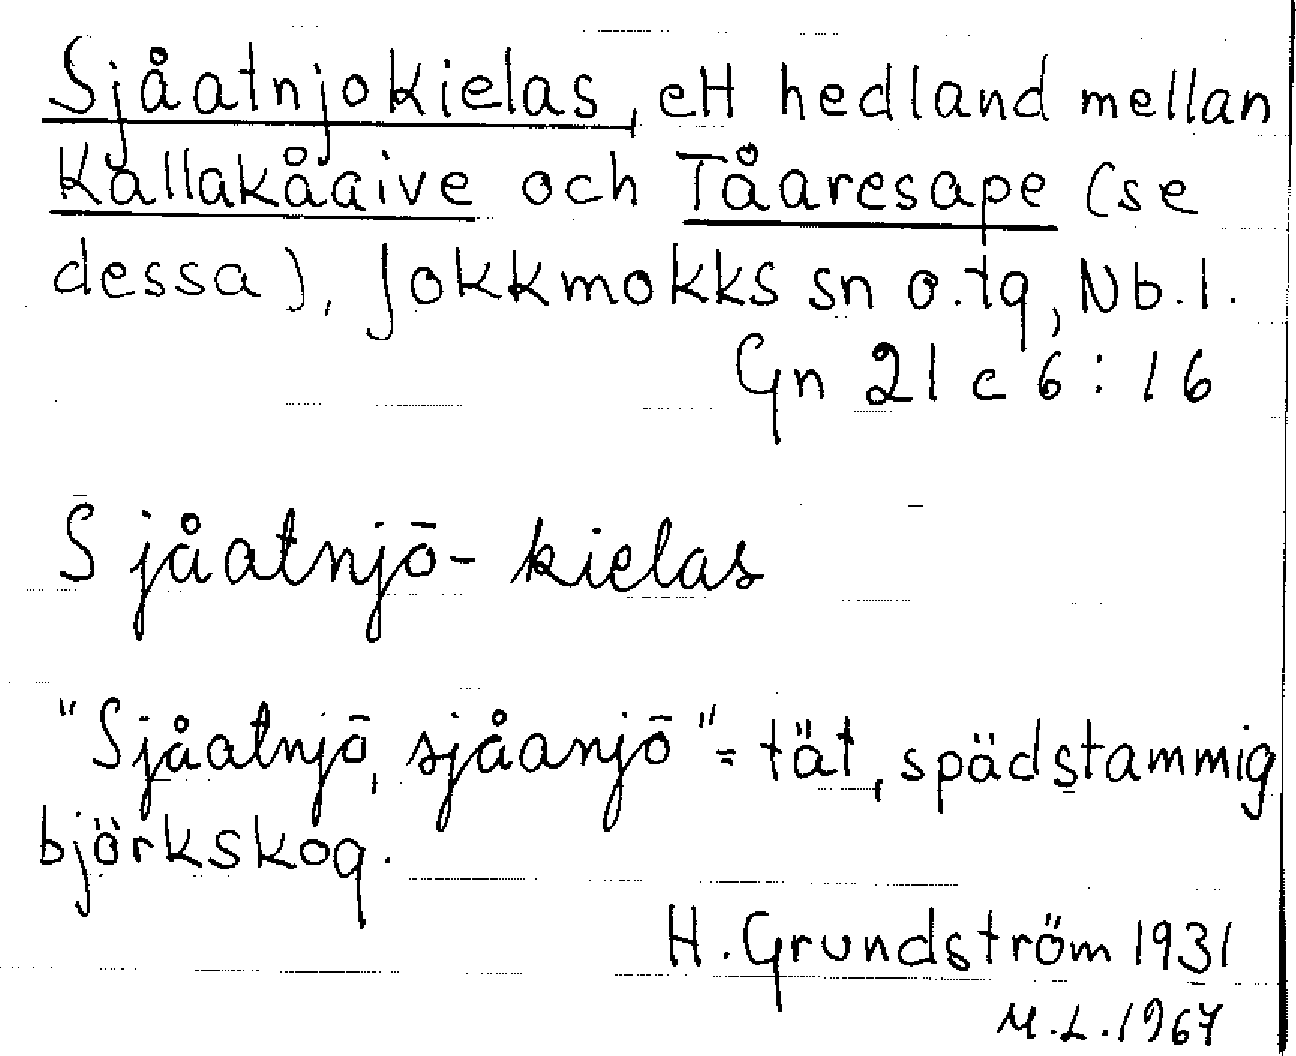 Sjåatnjokielas, ett hedland mellan
Kallakåaive och Tåaresape (se
dessa), Jokkmokks sn o. tg, Nb. l.
Gn 21 c 6 : 16
Sjåatnjō-kielas
"Sjåatnjō, sjåanjō" = tät, spädstammig
björkskog.
H. Grundström 1931
M.L. 1967